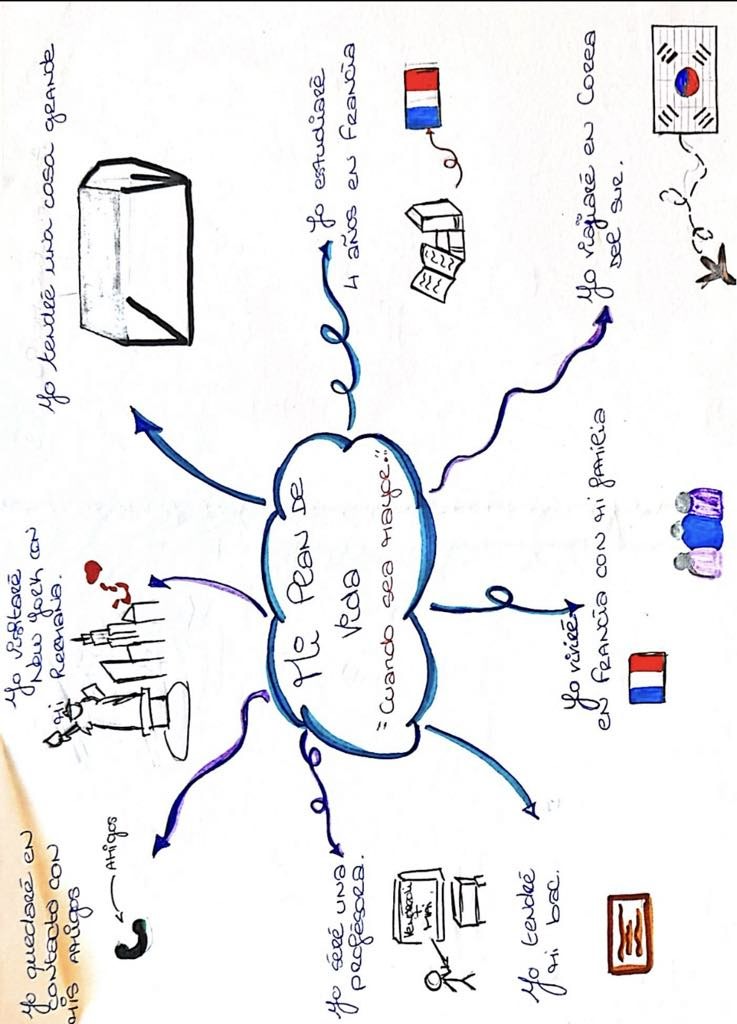 Yo quedaré en
contacto con
mis amigos
Amigos
Yo visitaré
New York con
mi hermana.
Yo tendré una casa grande
Yo séré una
profésora.
Vendredi
7
Mi Plan de
Vida
"Cuando sea mayor..."
Yo estudiaré
4 años en Francia
Yo tendré
mi bac.
Yo viviré
en Francia con mi familia
Yo viajaré en Corea
del sur.